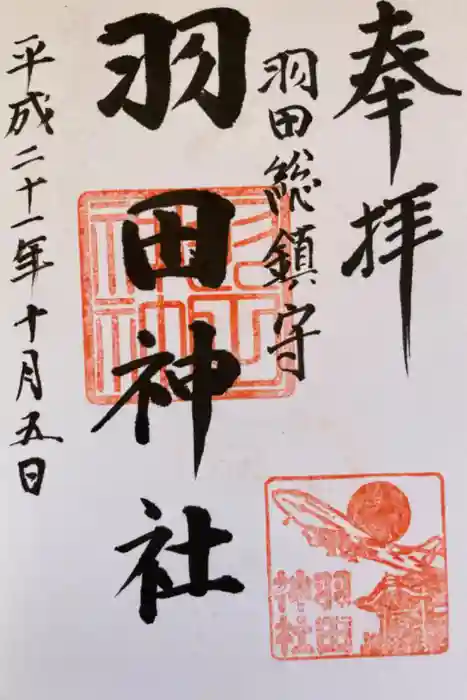 奉拝
羽田総鎮守
羽田神社
平成二十一年十月五日
羽田
神社